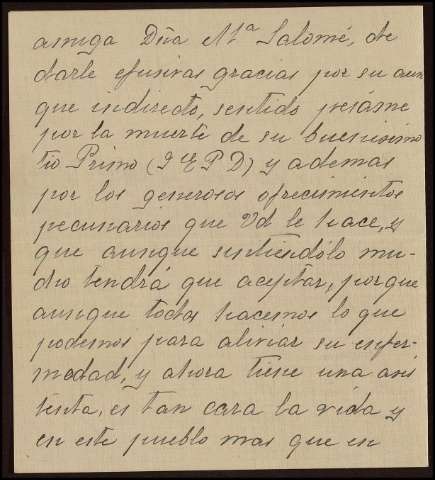 amiga Dña Mª Salomé, de
darle efusivas gracias por su aun
que indirecto, sentido pésame
por la muerte de su buenisimo
tio Primo (q E P D) y ademas
por los generosos ofrecimientos
pecunarios que Vd le hace, y
que aunque sintiendólo mu-
cho tendrá que aceptar, porque
aunque todos hacemos lo que
podemos para aliviar su enfer-
medad, y ahora tiene una asis
tenta, es tan cara la vida y
en este pueblo mas que en